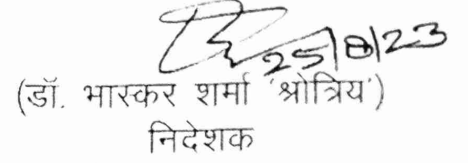 25/8/23
(डॉ. भास्कर शर्मा 'श्रोत्रिय')
निदेशक